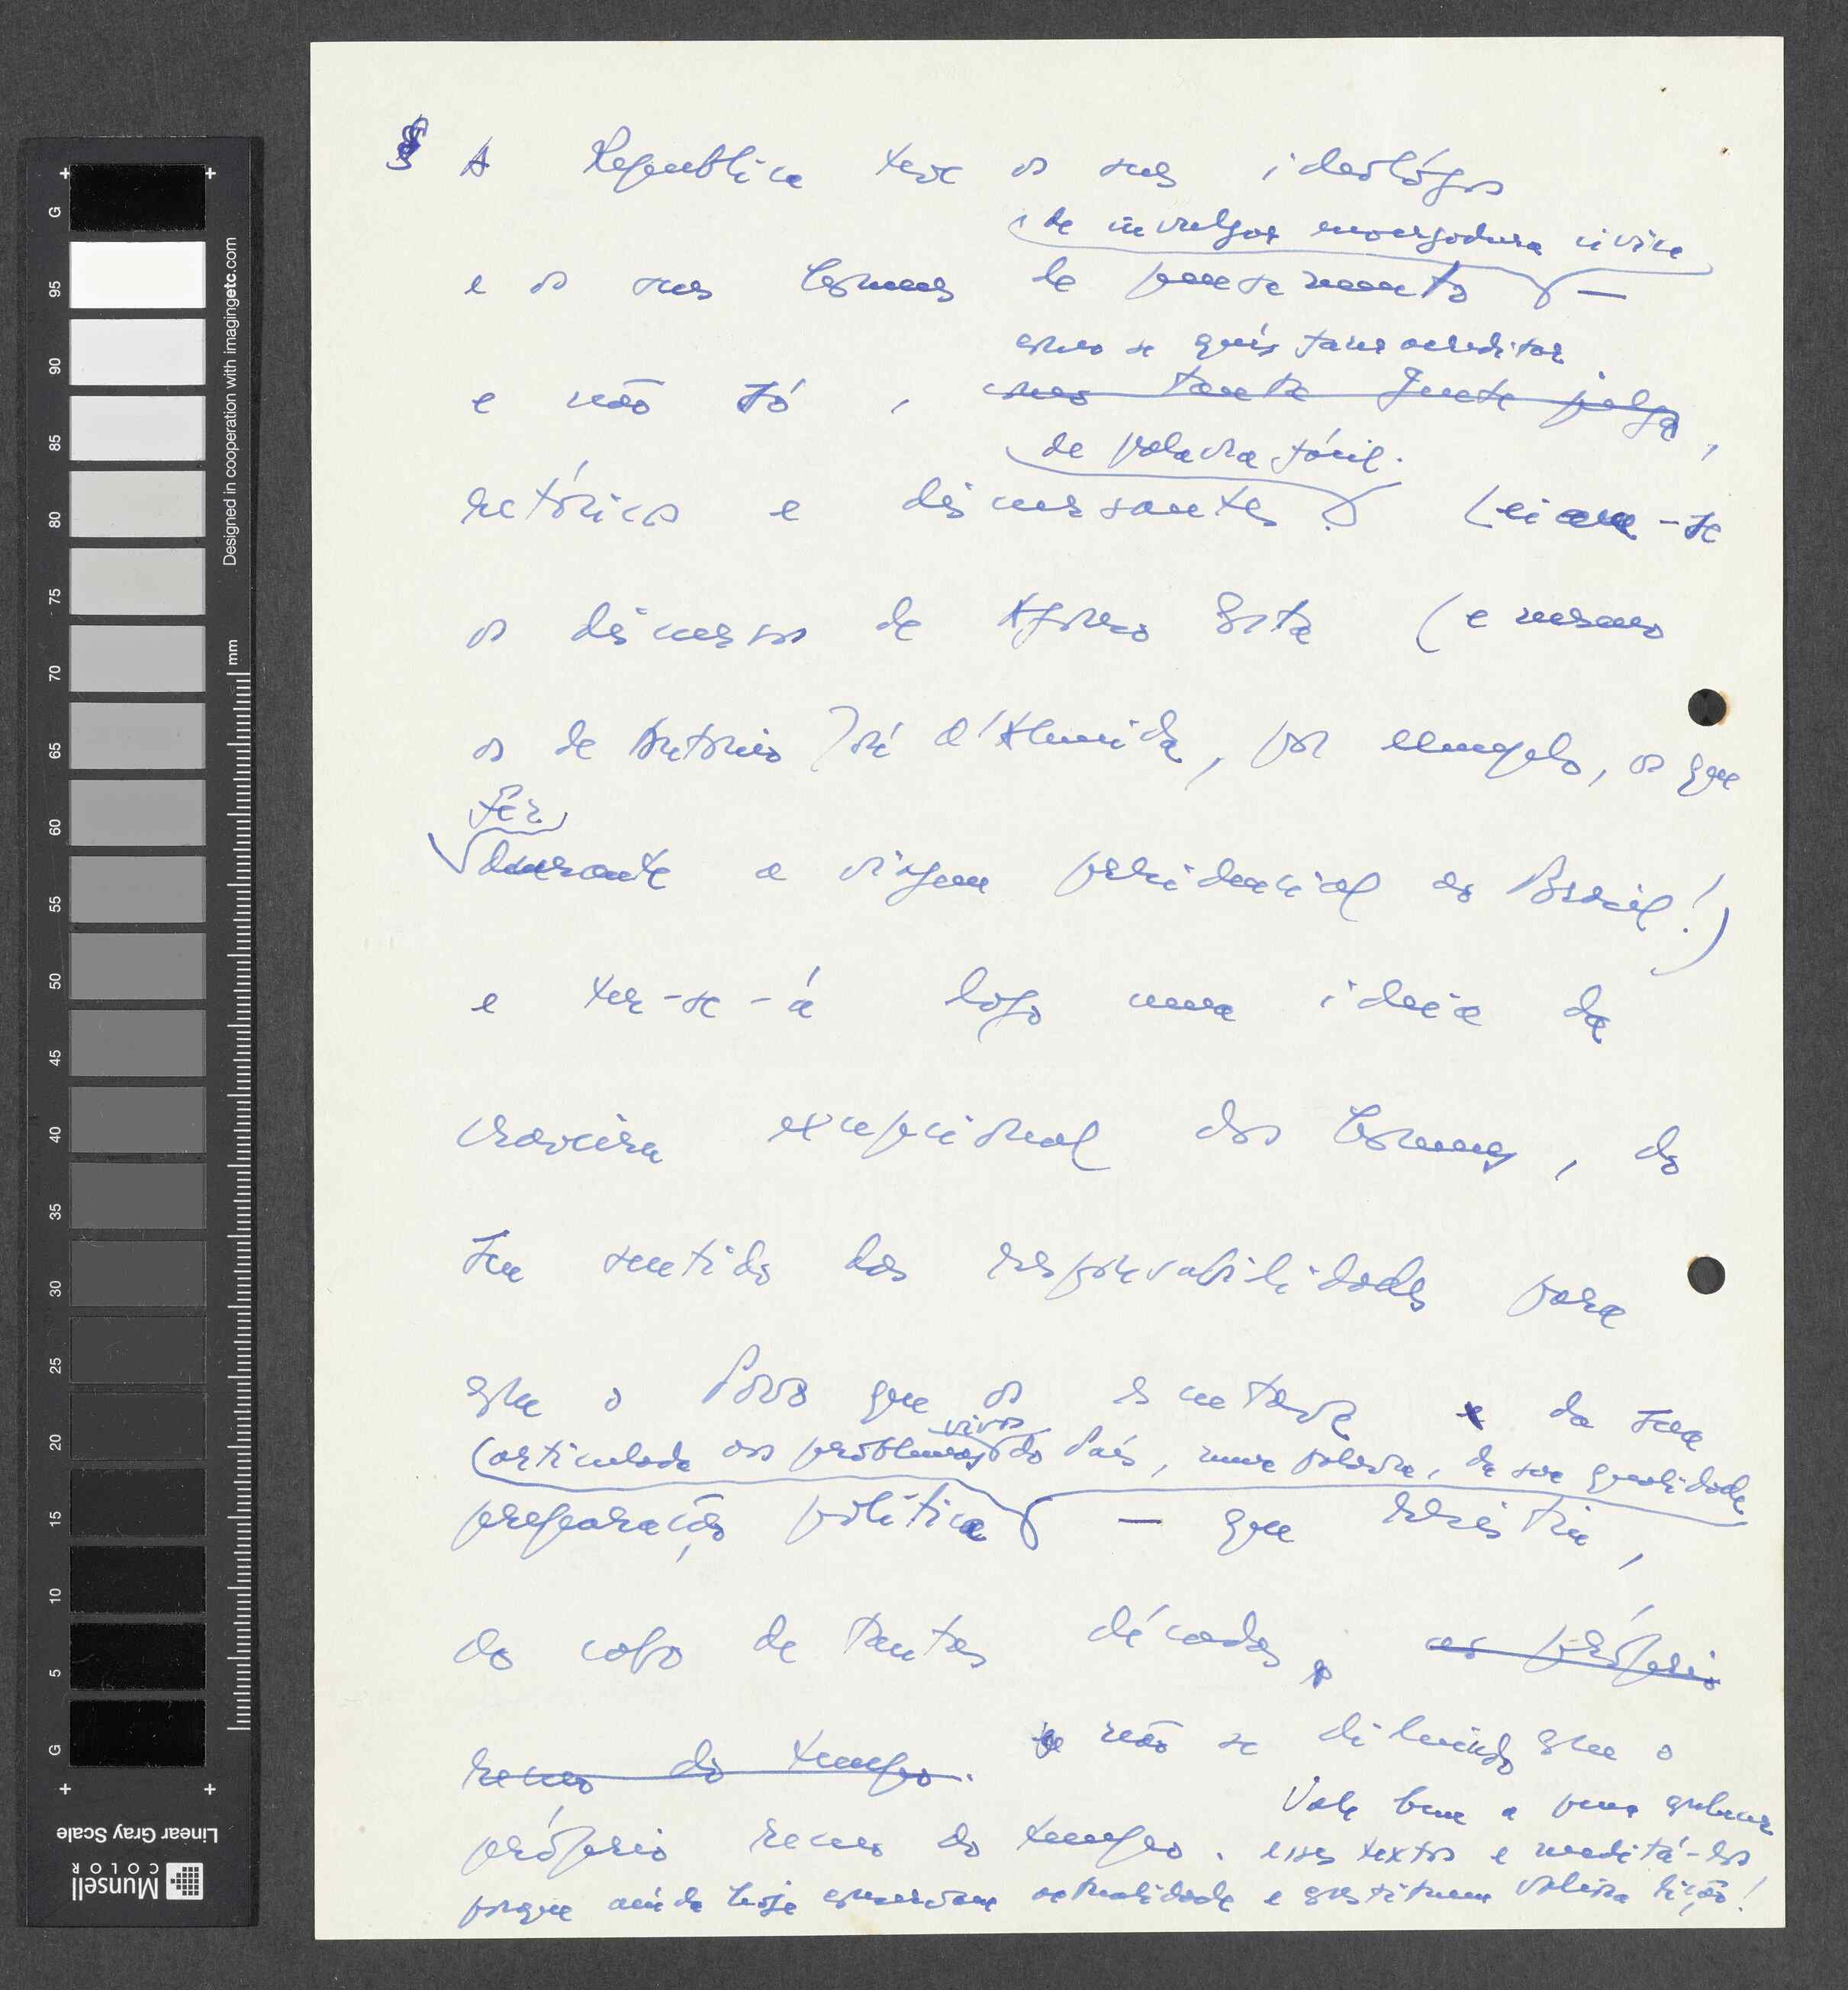 § A Republica teve os seus ideológos
de invulgar envergadura civica
e os seus homens de pensamento —
como se quis fazer acreditar
e não só, como tanta gente julga,
de palavra fácil.
retóricos e discursantes Leiam-se
os discursos de Afonso Costa (e mesmo
os de António José d'Almeida, por exemplo, os que
fez
durante a viagem presidencial ao Brasil!)
e ter-se-á logo uma ideia da
craveira excepcional dos homens, do
seu sentido das responsabilidades para
com o Povo que os escutava e da sua
vivos
(articulada aos problemas do País, numa palavra, da sua qualidade
preparação política — que resistiu,
ao cabo de tantas décadas, ao próprio
recuo do tempo. e não se diluindo com o
Vale bem a pena conhecer
próprio recuo do tempo. esses textos e meditá-los
porque ainda hoje conservam actualidade e constituem valiosa lição!
G
95
90
85
80
75
70
65
60
55
50
45
40
35
30
25
20
15
10
5
G
mm
Designed in cooperation with imagingetc.com
Linear Gray Scale
Munsell
COLOR